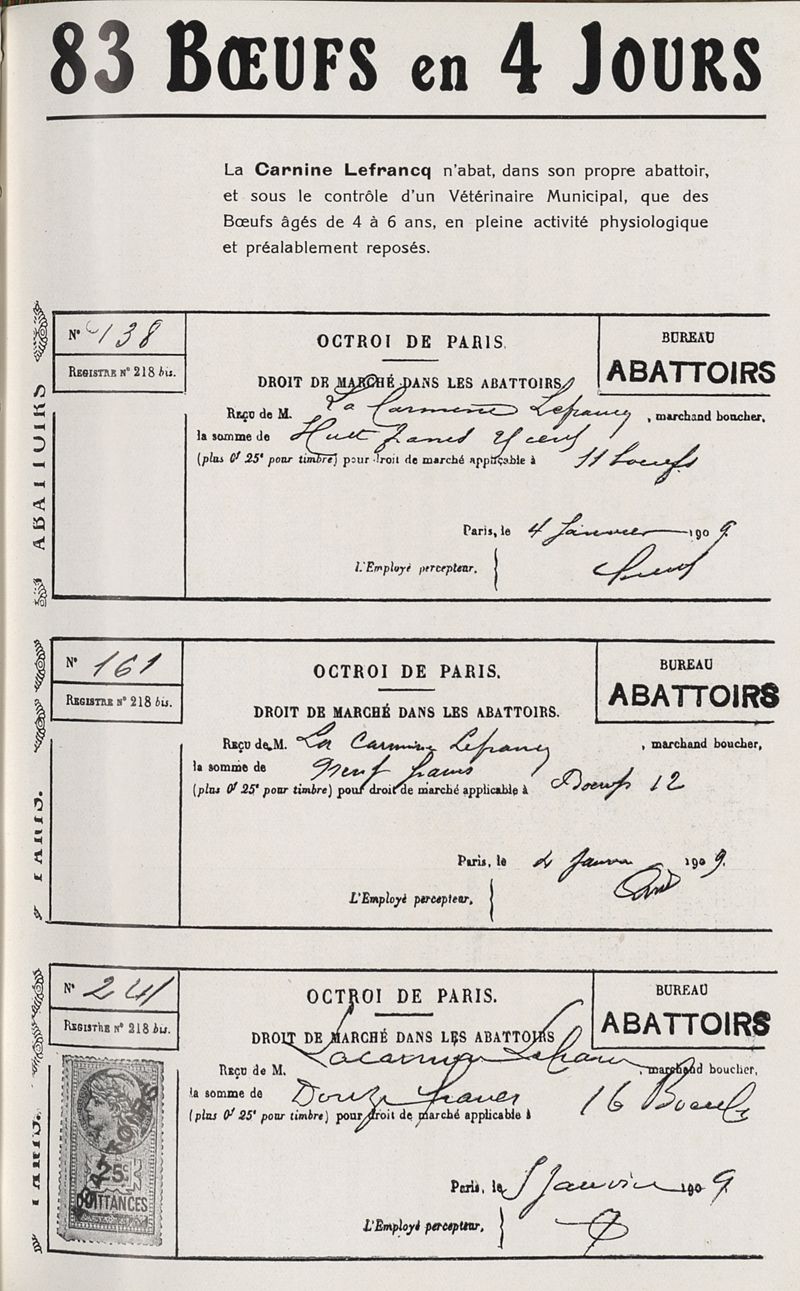 83 BŒUFS en 4 JOURS
La Carnine Lefrancq n'abat, dans son propre abattoir,
et sous le contrôle d'un Vétérinaire Municipal, que des
Bœufs âgés de 4 à 6 ans, en pleine activité physiologique
et préalablement reposés.
ABATTOIRS
N° 138
REGISTRE N° 218 bis.
OCTROI DE PARIS.
BUREAU
ABATTOIRS
DROIT DE MARCHÉ DANS LES ABATTOIRS
Reçu de M. La Carnine Lefrancq, marchand boucher,
la somme de Huit francs
(plus 0f 25c pour timbre) pour droit de marché applicable à 11 boeufs
Paris, le 4 Janvier 1909
L'Employé percepteur,
PARIS.
N° 161
REGISTRE N° 218 bis.
OCTROI DE PARIS.
BUREAU
ABATTOIRS
DROIT DE MARCHÉ DANS LES ABATTOIRS.
Reçu de M. La Carnine Lefrancq, marchand boucher,
la somme de Neuf francs
(plus 0f 25c pour timbre) pour droit de marché applicable à Boeufs 12
Paris, le 4 Janvier 1909.
L'Employé percepteur,
PARIS.
N° 241
REGISTRE N° 218 bis.
OCTROI DE PARIS.
BUREAU
ABATTOIRS
DROIT DE MARCHÉ DANS LES ABATTOIRS
Reçu de M. La Carnine Lefrancq, marchand boucher,
la somme de Douze francs
(plus 0f 25c pour timbre) pour droit de marché applicable à 16 Boeufs
25c
QUITTANCES
Paris, le 5 Janvier 1909
L'Employé percepteur,